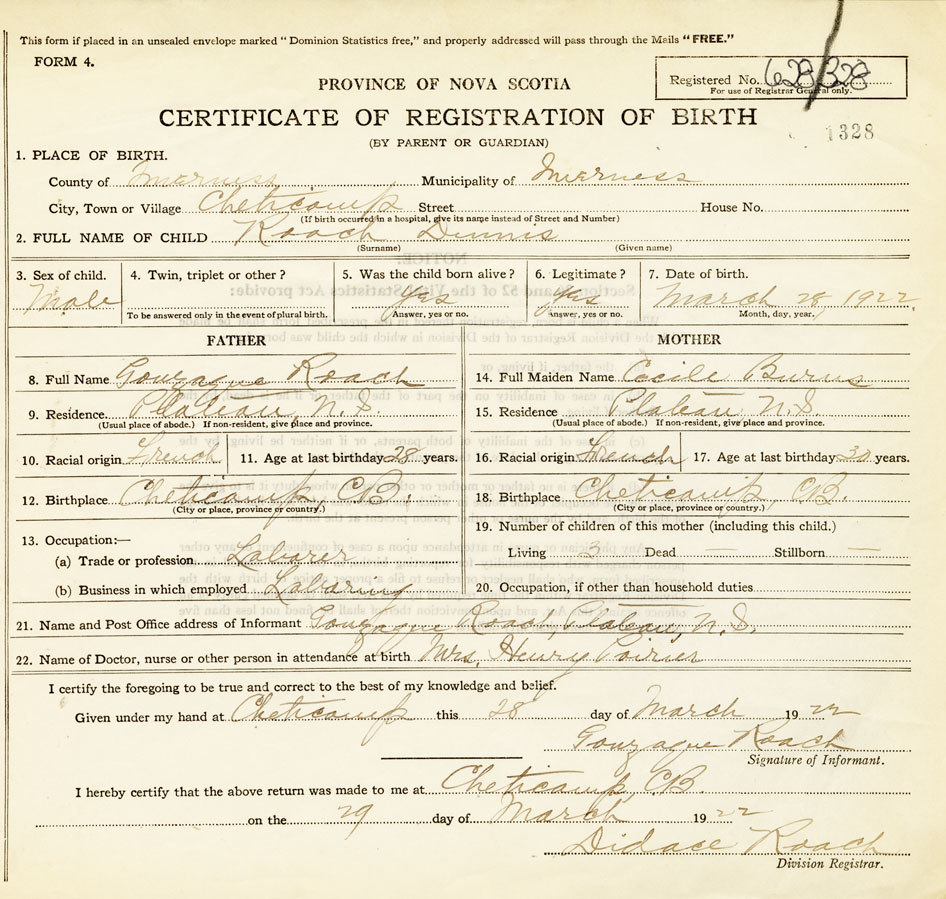 This form if placed in an unsealed envelope marked "Dominion Statistics free," and properly addressed will pass through the Mails "FREE."
FORM 4.
PROVINCE OF NOVA SCOTIA
Registered No. 628/328
For use of Registrar General only.
CERTIFICATE OF REGISTRATION OF BIRTH
1328
(BY PARENT OR GUARDIAN)
1. PLACE OF BIRTH.
County of Inverness Municipality of Inverness
City, Town or Village Cheticamp Street House No.
(If birth occurred in a hospital, give its name instead of Street and Number)
2. FULL NAME OF CHILD Roach Dennis
(Surname) (Given name)
3. Sex of child. 4. Twin, triplet or other? 5. Was the child born alive? 6. Legitimate? 7. Date of birth.
Male Yes Yes March 28, 1922,
To be answered only in the event of plural birth. Answer, yes or no. Answer, yes or no. Month, day, year.
FATHER MOTHER
8. Full Name Gonzague Roach 14. Full Maiden Name Cecile Burns
9. Residence. Plateau, N.S. 15. Residence Plateau N.S.
(Usual place of abode.) If non-resident, give place and province. (Usual place of abode.) If non-resident, give place and province.
10. Racial origin French 11. Age at last birthday 28 years. 16. Racial origin French 17. Age at last birthday 30 years.
12. Birthplace Cheticamp, CB. 18. Birthplace Cheticamp, CB.
(City or place, province or country.) (City or place, province or country.)
13. Occupation:— 19. Number of children of this mother (including this child.)
(a) Trade or profession Laborer Living 3 Dead — Stillborn —
(b) Business in which employed Laboring 20. Occupation, if other than household duties
21. Name and Post Office address of Informant Gonzague Roach, Plateau, N.S.
22. Name of Doctor, nurse or other person in attendance at birth Mrs. Henry Poirier
I certify the foregoing to be true and correct to the best of my knowledge and belief.
Given under my hand at Cheticamp this 28 day of March 1922
Gonzague Roach
Signature of Informant.
I hereby certify that the above return was made to me at Cheticamp, CB.
on the 29 day of March 1922
Didace Roach
Division Registrar.